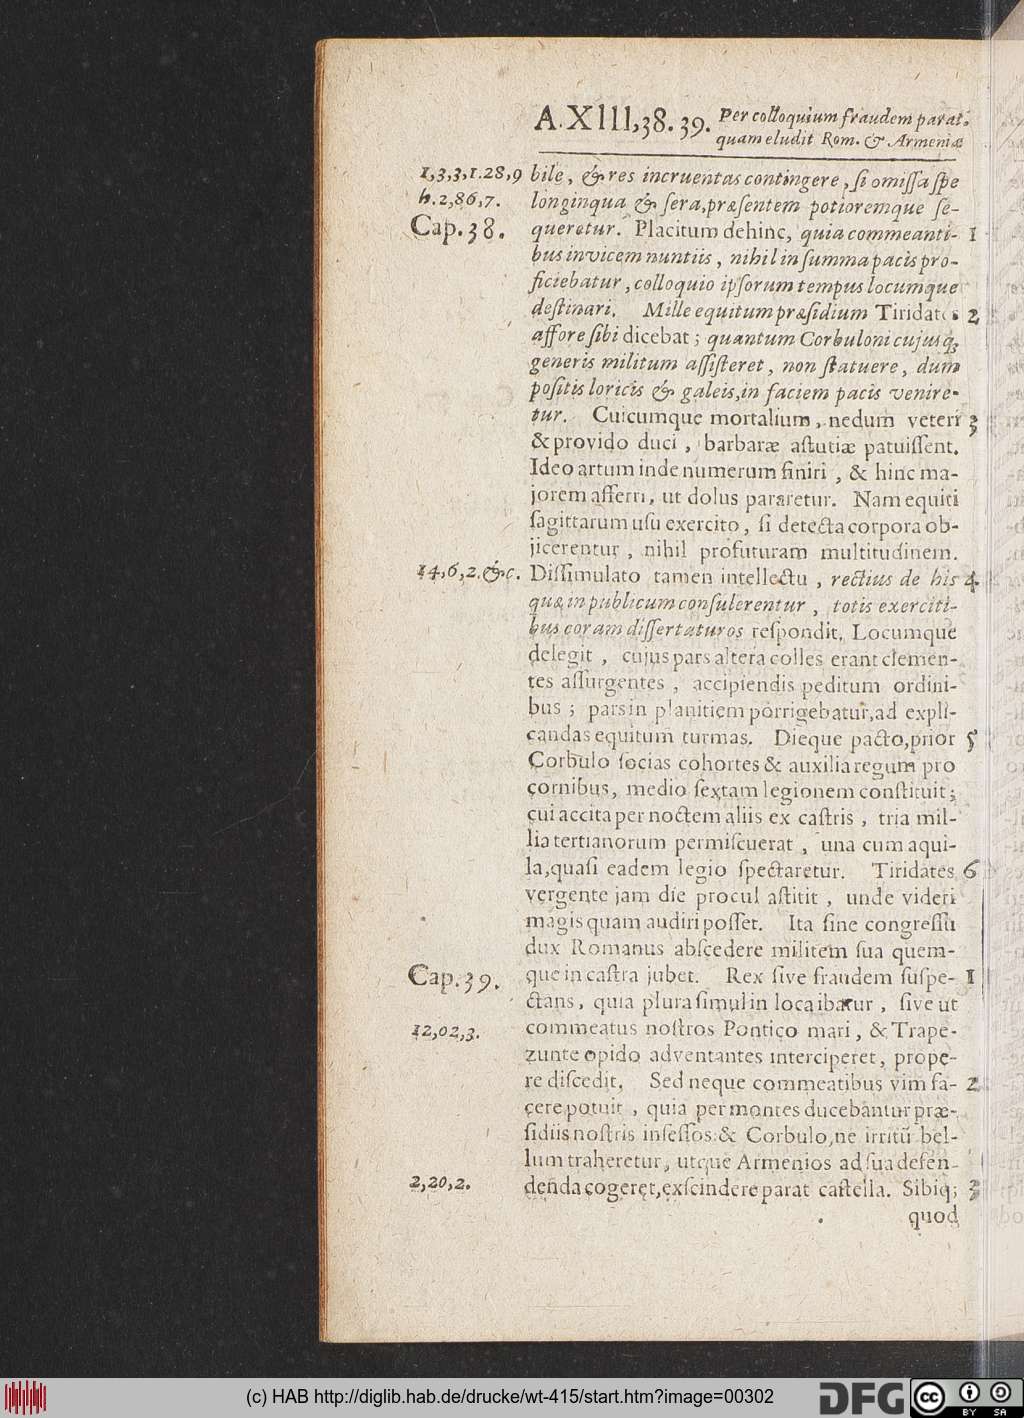 A. XIII, 38. 39. Per colloquium fraudem parat,
quam eludit Rom. & Armeniæ
1,3,3,1.28,9 bile, & res incruentas contingere, ſi omiſſa ſpe
h.2,86,7. longinqua & ſera, præſentem potioremque ſe-
Cap. 38. queretur. Placitum dehinc, quia commeanti- 1
bus invicem nuntiis, nihil in ſumma pacis pro-
ficiebatur, colloquio ipſorum tempus locumque
deſtinari. Mille equitum præſidium Tiridates 2
affore ſibi dicebat; quantum Corbuloni cujusq;
generis militum aſſiſteret, non ſtatuere, dum
poſitis loricis & galeis, in faciem pacis venire-
tur. Cuicumque mortalium, nedum veteri 3
& provido duci, barbaræ aſtutiæ patuiſſent.
Ideo artum inde numerum finiri, & hinc ma-
jorem afferri, ut dolus pararetur. Nam equiti
ſagittarum uſu exercito, ſi detecta corpora ob-
jicerentur, nihil profuturam multitudinem.
14,6,2.&c. Diſſimulato tamen intellectu, rectius de his 4
quæ in publicum conſulerentur, totis exerciti-
bus coram diſſertaturos reſpondit. Locumque
delegit, cujus pars altera colles erant clemen-
tes aſſurgentes, accipiendis peditum ordini-
bus; pars in planitiem porrigebatur, ad expli-
candas equitum turmas. Dieque pacto, prior 5
Corbulo ſocias cohortes & auxilia regum pro
cornibus, medio ſextam legionem conſtituit;
cui accita per noctem aliis ex caſtris, tria mil-
lia tertianorum permiſcuerat, una cum aqui-
la, quaſi eadem legio ſpectaretur. Tiridates 6
vergente jam die procul aſtitit, unde videri
magis quam audiri poſſet. Ita ſine congreſſu
dux Romanus abſcedere militem ſua quem-
Cap. 39. que in caſtra jubet. Rex ſive fraudem ſuſpe- 1
ctans, quia plura ſimul in loca ibatur, ſive ut
12,02,3. commeatus noſtros Pontico mari, & Trape-
zunte opido adventantes interciperet, prope-
re diſcedit. Sed neque commeatibus vim fa- 2
cere potuit, quia per montes ducebantur præ-
ſidiis noſtris inſeſſos: & Corbulo, ne irritū bel-
lum traheretur, utque Armenios ad ſua defen-
2,20,2. denda cogeret, exſcindere parat caſtella. Sibiq; 3
quod
(c) HAB http://diglib.hab.de/drucke/wt-415/start.htm?image=00302
DFG
cc BY SA